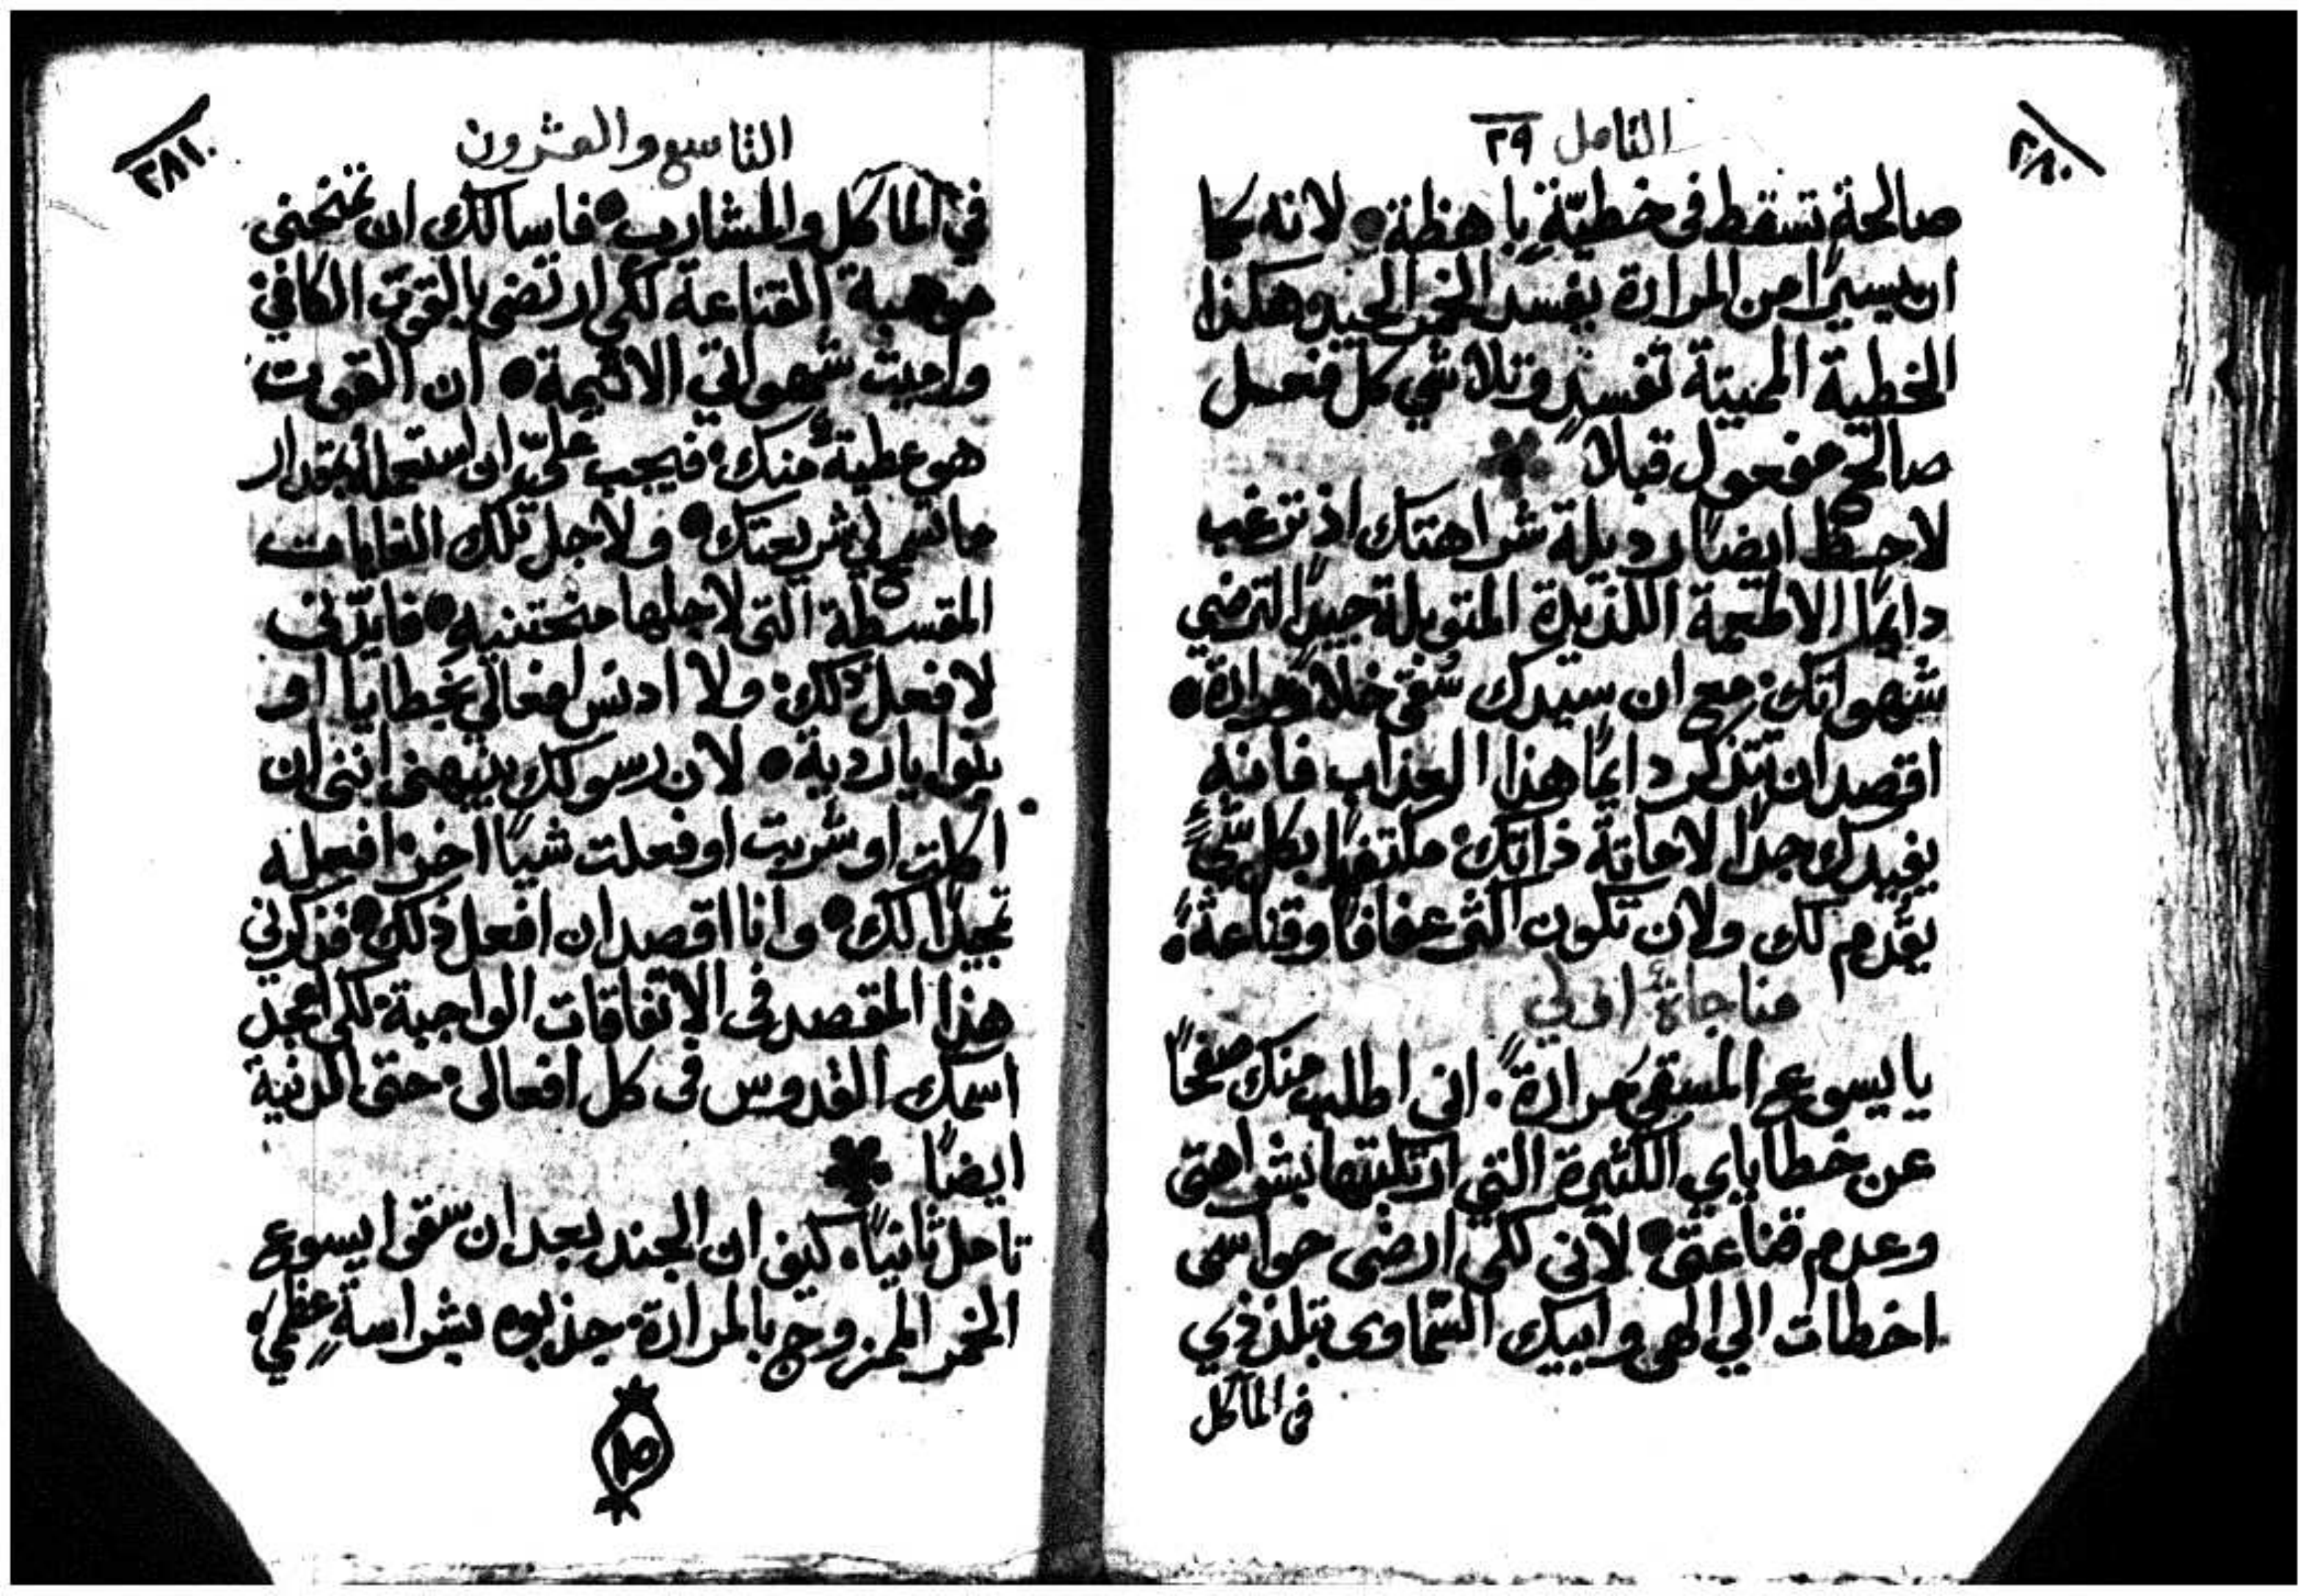 ٢٨٠
التامل ٢٩
صالحةٍ تسقط في خطيّةٍ باهظة ● لانه كما
ان يسيرًا من المرارة يفسد الخمر الجيد وهكذا
الخطية المميتة تفسد وتلاشي كل فعل
صالح مفعول قبلاً
لاحظ ايضًا رديلة شراهتك اذ ترغب
دايمًا الاطعمة اللذيذة المتوبلة جيدًا لترضي
شهواتك: مع ان سيدك سُقي خلاً ومرارة ●
اقصد ان تتذكر دايمًا هذا العذاب فانه
يفيدك جدًا لاماتة ذاتك: مكتفيًا بكل شيءٍ
يقدم لك ولان تكون اكثر عفافًا وقناعةً:
مناجاةٌ اولي
يا يسوع المسقي مرارةً. اني اطلب منك صفحًا
عن خطاياي الكثيرة التي ارتكبتها بشراهتي
وعدم قناعتي ● لاني لكي ارضي حواسي
اخطات الي الهي وابيك السماوي بتلذذي
في الماكل
٢٨١
التاسع والعشرون
في الماكل والمشارب ● فاسالك ان تمنحني
موهبة القناعة لكي ارتضي بالقوت الكافي:
واميت شهواتي الاثيمة ● ان القوت
هو عطيةٌ منك: فيجب عليّ ان استعمله بمقدار
ما تسم لي شريعتك ● ولاجل تلك الغايات
المقسطة التي لاجلها منحتنيه ● فايّدني
لافعل ذلك: ولا ادنس افعالي بخطايا او
بنوايا ردية ● لان رسولك ينبهني انني ان
اكلت او شربت او فعلت شيًا اخر: افعله
تمجيدًا لك ● وانا اقصد ان افعل ذلك ● فذكرني
هذا المقصد في الاتفاقات الواجبة: لكي امجد
اسمك القدوس في كل افعالي: حتى الدنية
ايضًا
تامل ثانيًا. كيف ان الجند بعد ان سقوا يسوع
الخمر الممزوج بالمرارة: جذبوه بشراسةٍ عظمي: